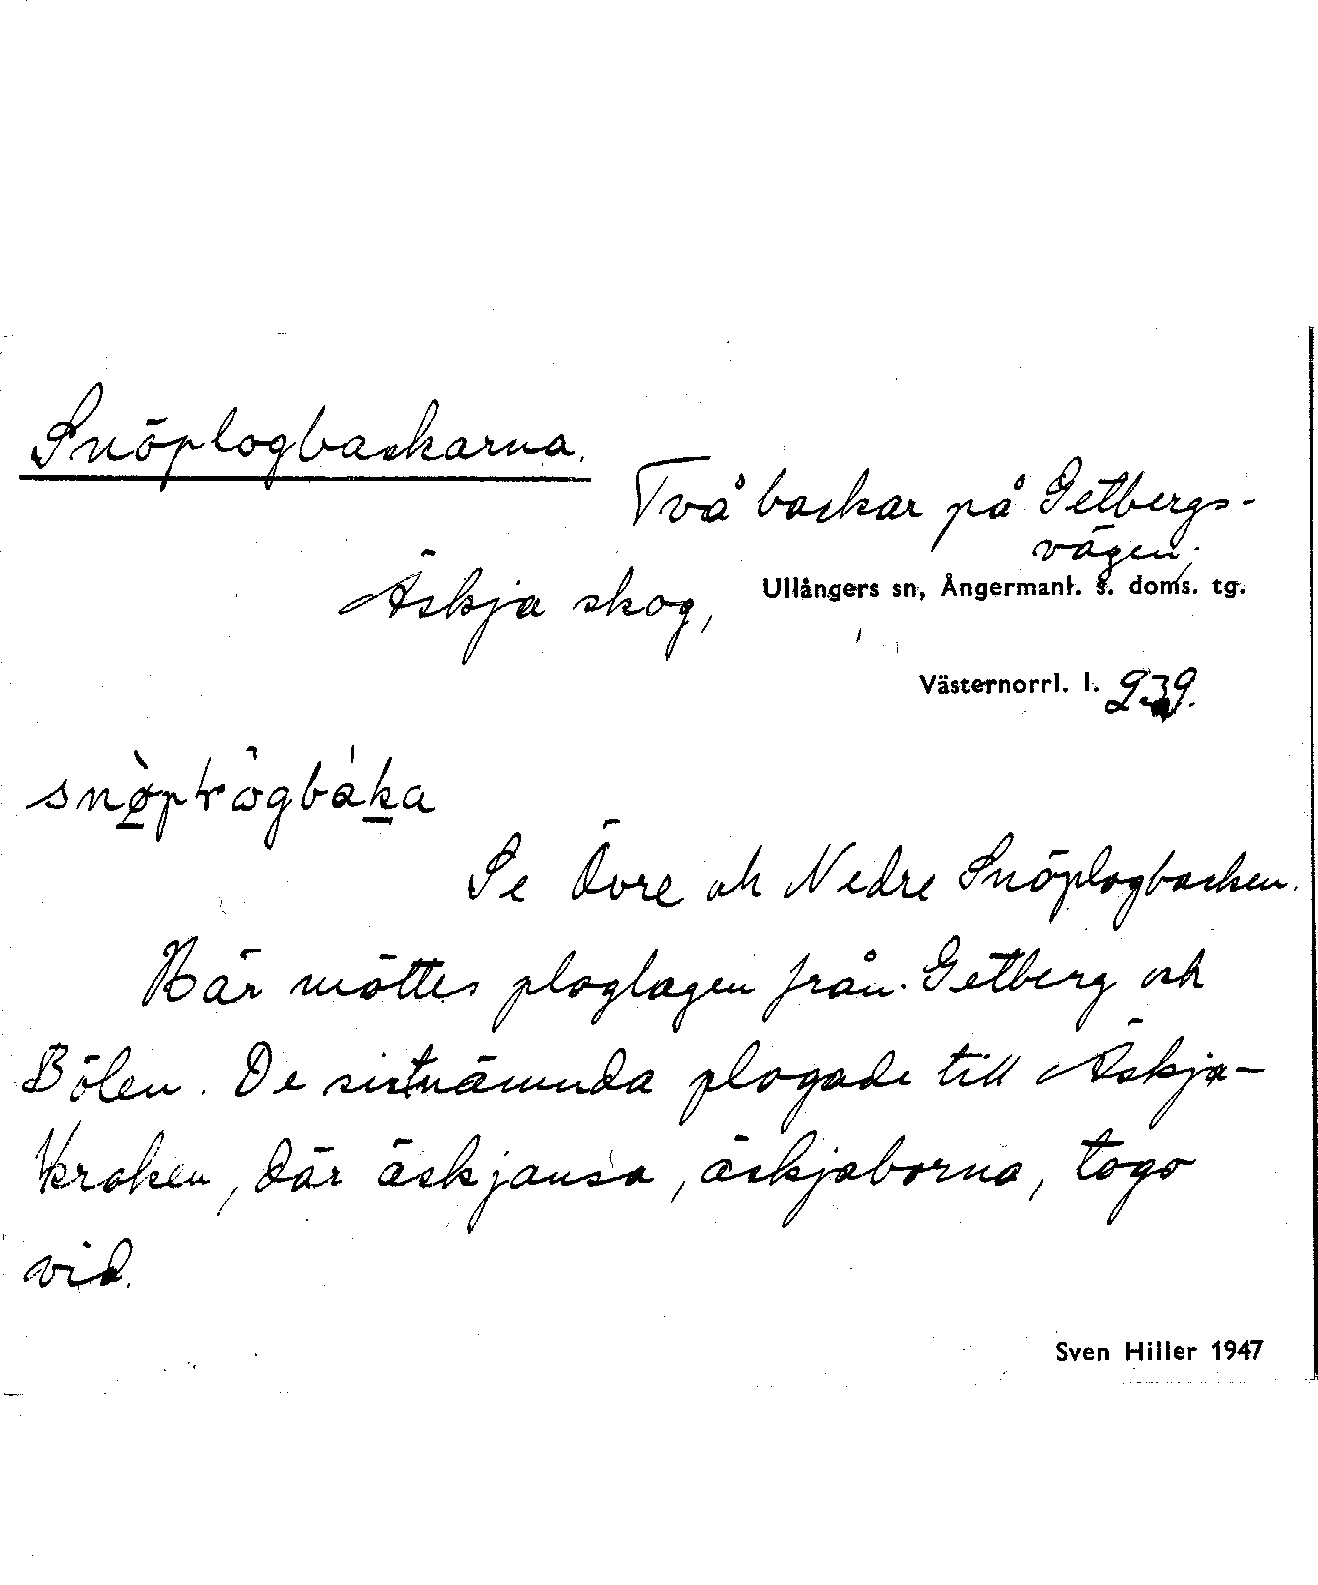 Snöplogbackarna.
Två backar på Getbergs-
vägen,
Äskja skog,
Ullångers sn, Ångermanl. s. doms. tg.
Västernorrl. l. 239.
Se Övre och Nedre Snöplogbacken.
Här möttes ploglagen från Getberg och
Bölen. De sistnämnda plogade till Äskja-
kroken, där äskjansa, äskjaborna, togo
vid.
Sven Hiller 1947